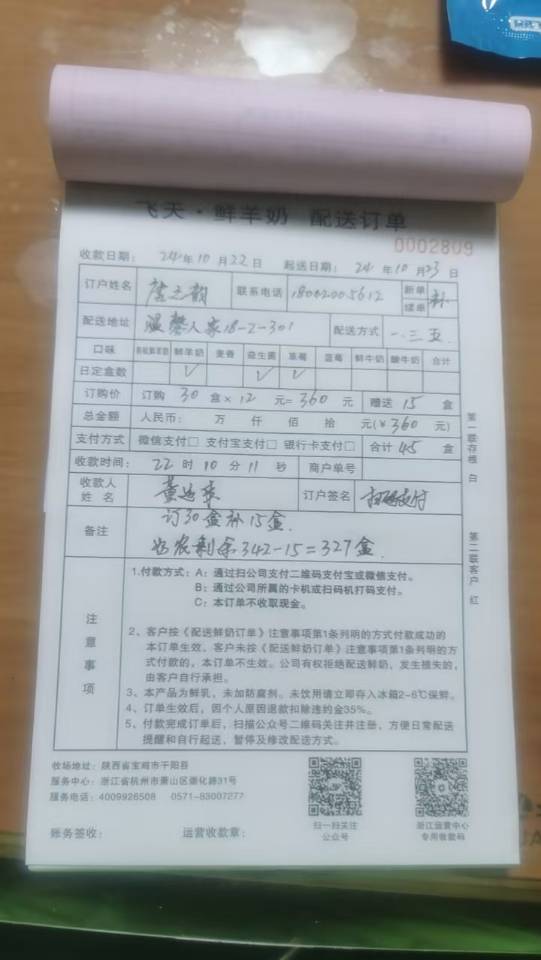 飞天·鲜羊奶 配送订单
0002809
收款日期: 24年10月22日 起送日期: 24年10月23日
订户姓名 联系电话 18002005612 新单 续单 补
配送地址 温馨人家18-2-301 配送方式 一.三.五.
口味 鲜羊奶 麦香 益生菌 草莓 蓝莓 鲜牛奶 酸牛奶 合计
日定盒数 √ √ √
订购价 订购 30 盒×12 元=360 元 赠送 15 盒
总金额 人民币: 万 仟 佰 拾 元(¥360元)
支付方式 微信支付□ 支付宝支付□ 银行卡支付□ 合计45盒
收款时间: 22时10分11秒 商户单号
收款人姓名 订户签名 扫码支付
备注 订30盒补15盒
剩余342-15=327盒
注意事项
1.付款方式:A:通过扫公司支付二维码支付宝或微信支付。
B:通过公司所属的卡机或扫码机打码支付。
C:本订单不收取现金。
2、客户按《配送鲜奶订单》注意事项第1条列明的方式付款成功的
本订单生效。客户未按《配送鲜奶订单》注意事项第1条列明的方
式付款的,本订单不生效。公司有权拒绝配送鲜奶,发生损失的,
由客户自行承担。
3、本产品为鲜乳,未加防腐剂。未饮用请立即存入冰箱2-6℃保鲜。
4、订单生效后,因个人原因退款扣除违约金35%。
5、付款完成订单后,扫描公众号二维码关注并注册,方便日常配送
提醒和自行起送,暂停及修改配送方式。
第一联存根 白
第二联客户 红
牧场地址:陕西省宝鸡市千阳县
服务中心:浙江省杭州市萧山区崇化路31号
服务电话:4009926508 0571-83007277
账务签收: 运营收款章:
扫一扫关注
公众号
浙江运营中心
专用收款码